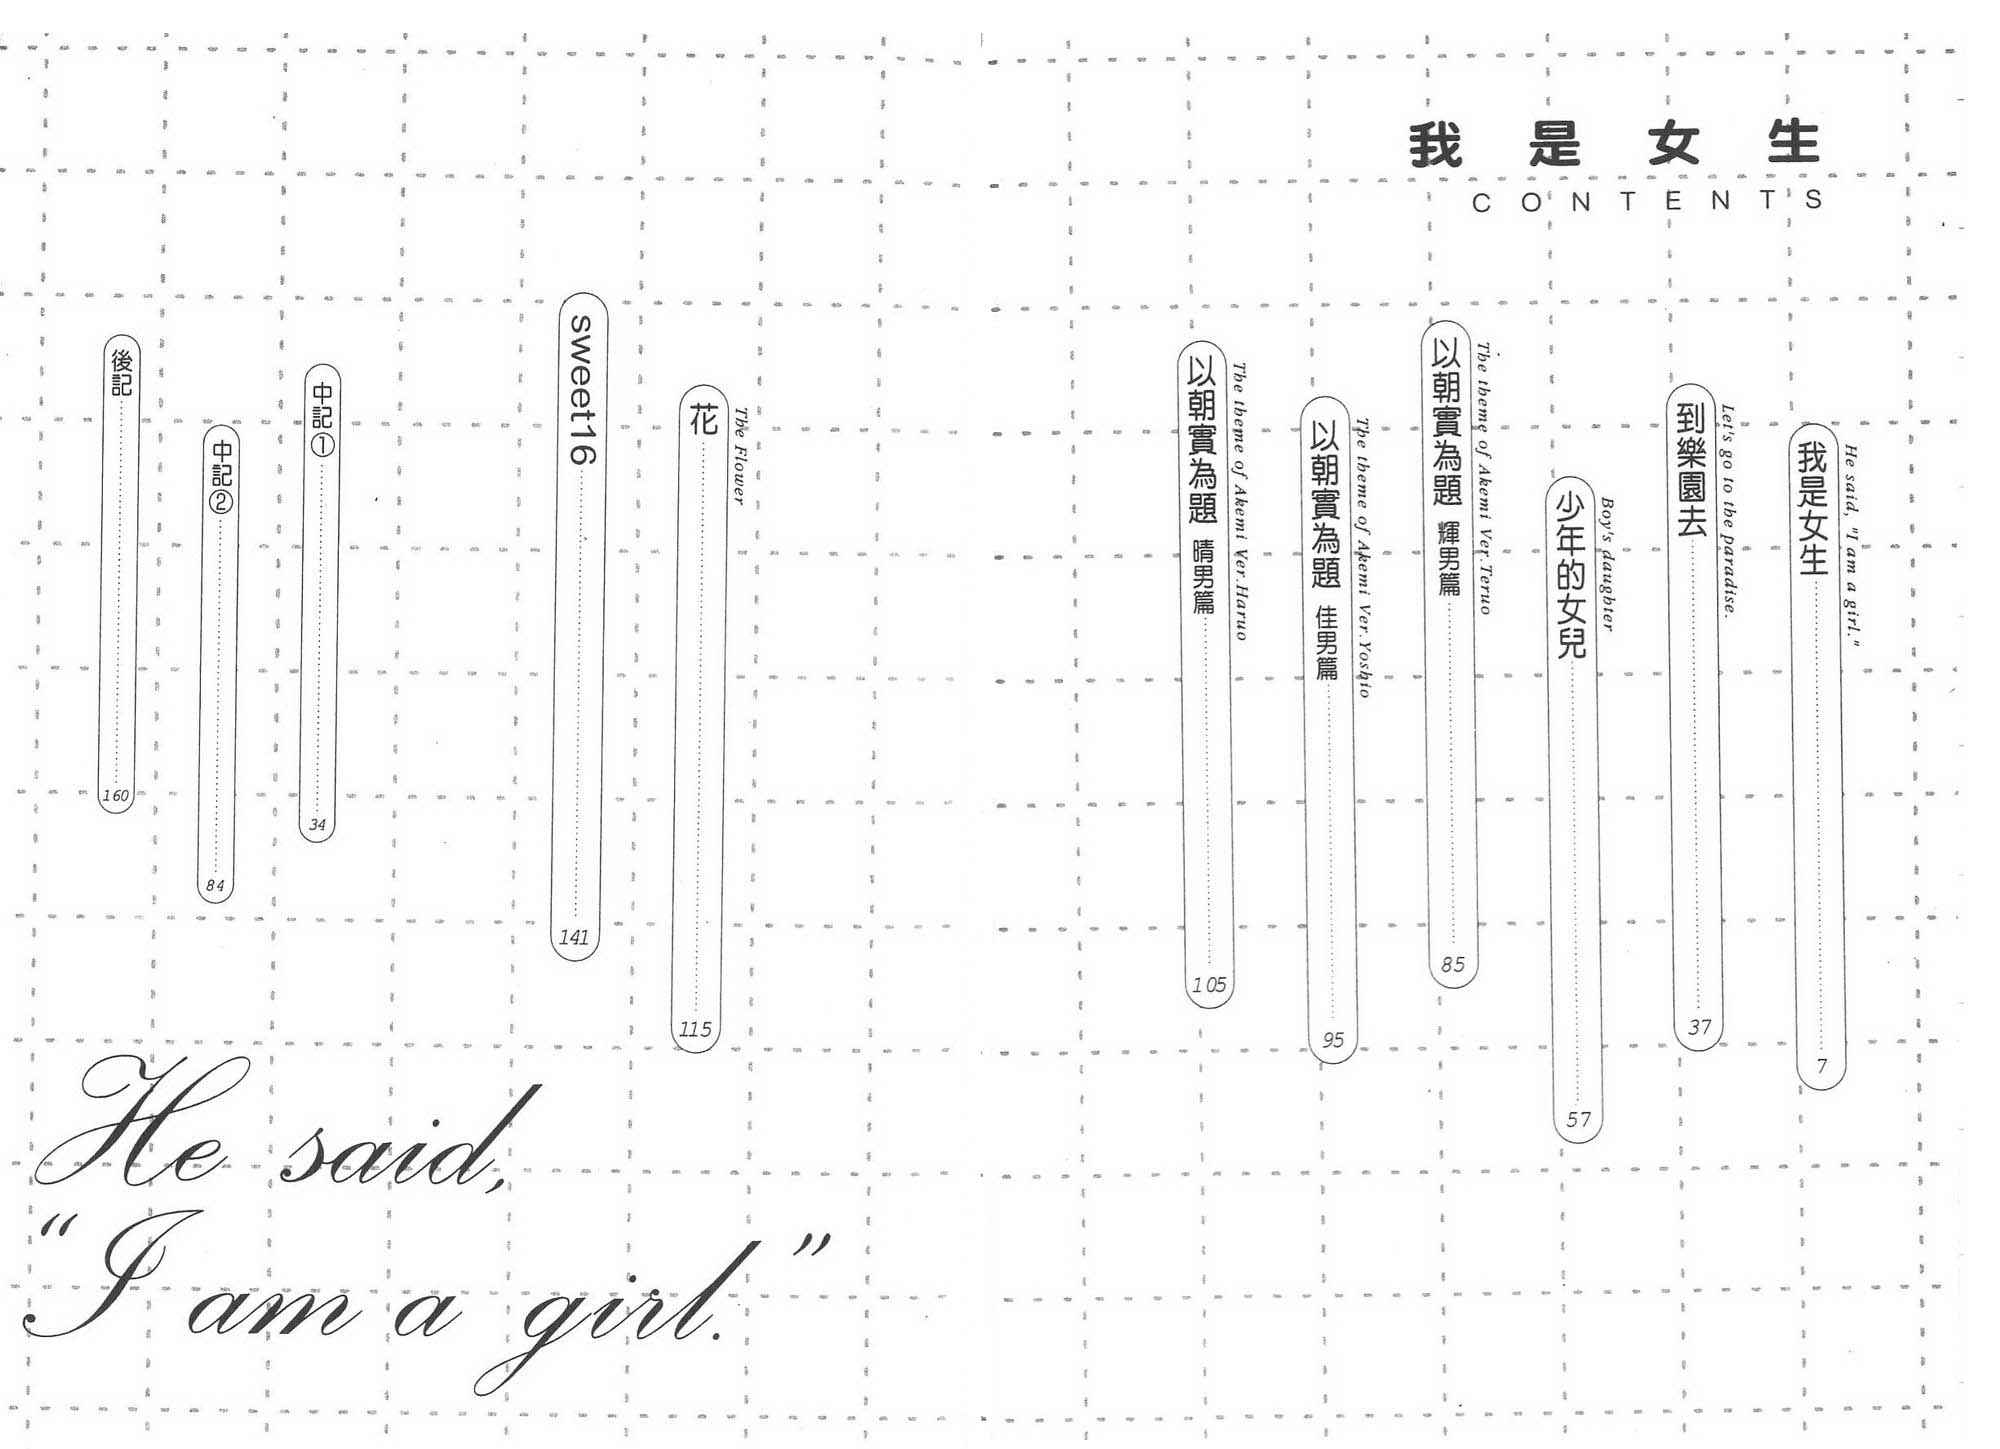 我是女生
CONTENTS
He said, "I am a girl."
我是女生 7
Let's go to the paradise.
到樂園去 37
Boy's daughter
少年的女兒 57
The theme of Akemi Ver.Teruo
以朝實為題 輝男篇 85
The theme of Akemi Ver.Yoshio
以朝實為題 佳男篇 95
The theme of Akemi Ver.Haruo
以朝實為題 晴男篇 105
The Flower
花 115
sweet16 141
中記① 34
中記② 84
後記 160
He said,
“I am a girl.”